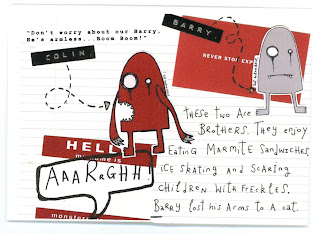 "Don't worry about our Barry.
He's armless...Boom Boom!"
COLIN.
BARRY.
NEVER STO
EXP
HELL
name is
AAARRGHH!
monsters
THESE TWO ARE
BROTHERS. THEY ENJOY
EATING MARMITE SANDWICHES,
ICE SKATING AND SCARING
CHILDREN WITH FRECKLES.
BARRY LOST HIS ARMS TO A CAT.